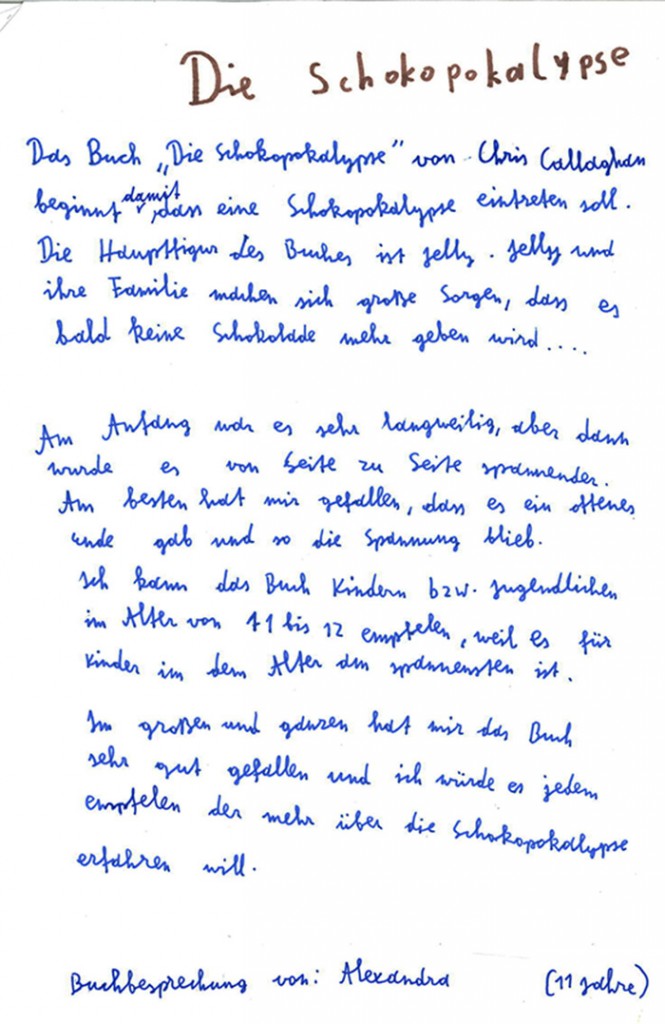 Die Schokopokalypse
Das Buch „Die Schokopokalypse" von Chris Callaghan
beginnt damit, dass eine Schokopokalypse eintreten soll.
Die Hauptfigur des Buches ist Jelly. Jelly und
ihre Familie machen sich große Sorgen, dass es
bald keine Schokolade mehr geben wird....
Am Anfang war es sehr langweilig, aber dann
wurde es von Seite zu Seite spannender.
Am besten hat mir gefallen, dass es ein offenes
ende gab und so die Spannung blieb.
Ich kann das Buch Kindern bzw. Jugendlichen
im Alter von 11 bis 12 empfelen, weil es für
Kinder in dem Alter am spannensten ist.
Im großen und ganzen hat mir das Buch
sehr gut gefallen und ich würde es jedem
empfelen der mehr über die Schokopokalypse
erfahren will.
Buchbesprechung von: Alexandra (11 Jahre)